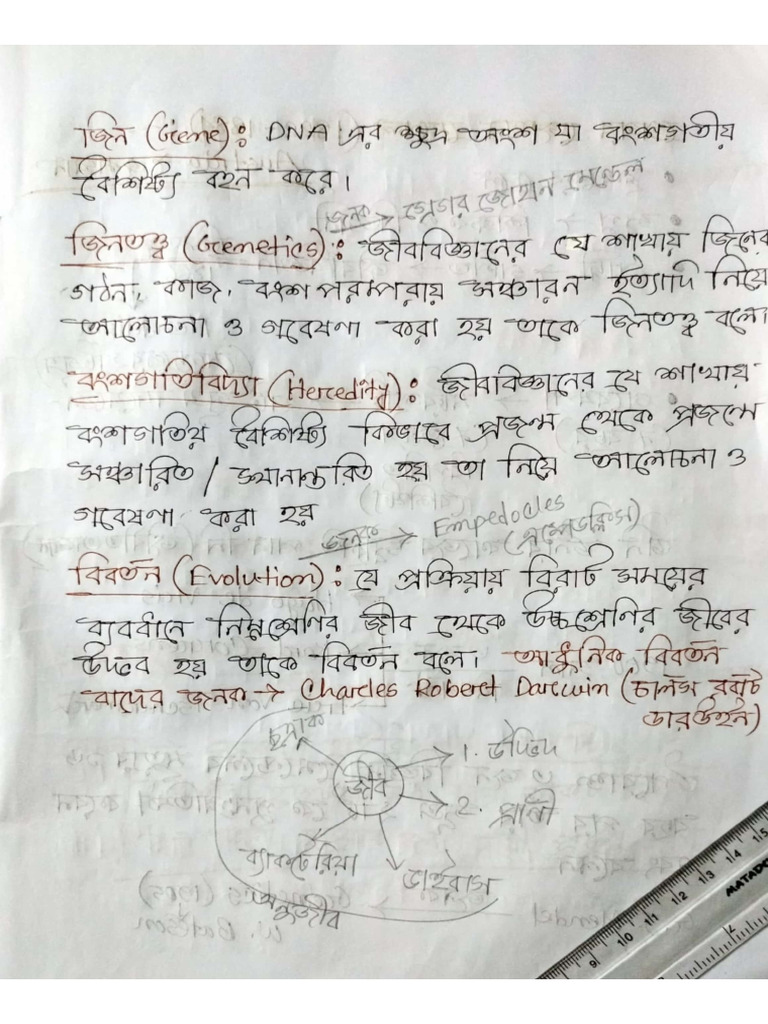 জিন (Gene): DNA এর ক্ষুদ্র অংশ যা বংশগতীয়
বৈশিষ্ট্য বহন করে।
জনক → গ্রেগর জোহান মেন্ডেল
জিনতত্ত্ব (Genetics): জীববিজ্ঞানের যে শাখায় জিনের
গঠন, কাজ, বংশপরম্পরায় সঞ্চারন ইত্যাদি নিয়ে
আলোচনা ও গবেষণা করা হয় তাকে জিনতত্ত্ব বলে।
বংশগতিবিদ্যা (Heredity): জীববিজ্ঞানের যে শাখায়
বংশগতিয় বৈশিষ্ট্য কিভাবে প্রজন্ম থেকে প্রজন্মে
সঞ্চারিত / স্থানান্তরিত হয় তা নিয়ে আলোচনা ও
গবেষণা করা হয়
জনক → Empedocles
(এম্পেডক্লিস)
বিবর্তন (Evolution): যে প্রক্রিয়ায় বিরাট সময়ের
ব্যবধানে নিম্নশ্রেণির জীব থেকে উচ্চশ্রেণির জীবের
উদ্ভব হয় তাকে বিবর্তন বলে। আধুনিক বিবর্তন
বাদের জনক → Charles Robert Darwin (চার্লস রবার্ট
ডারউইন)
ছত্রাক
জীব
1. উদ্ভিদ
2. প্রাণী
ব্যাকটেরিয়া
ভাইরাস
অনুজীব
MATADO